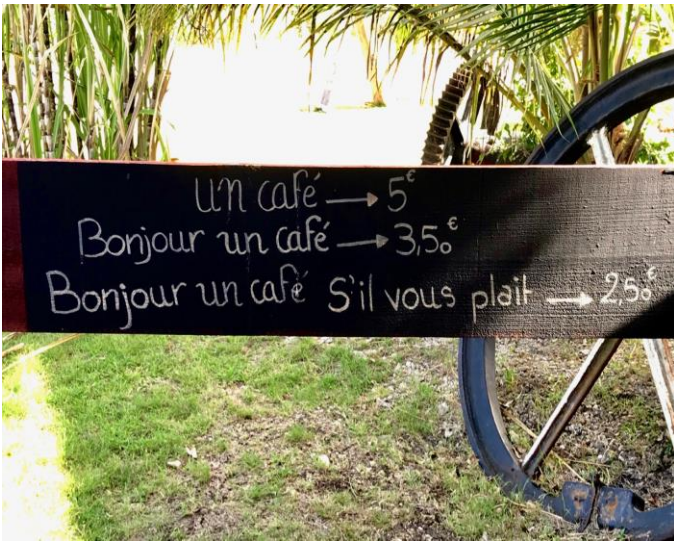 un café → 5€
Bonjour un café → 3,50€
Bonjour un café s'il vous plait → 2,50€